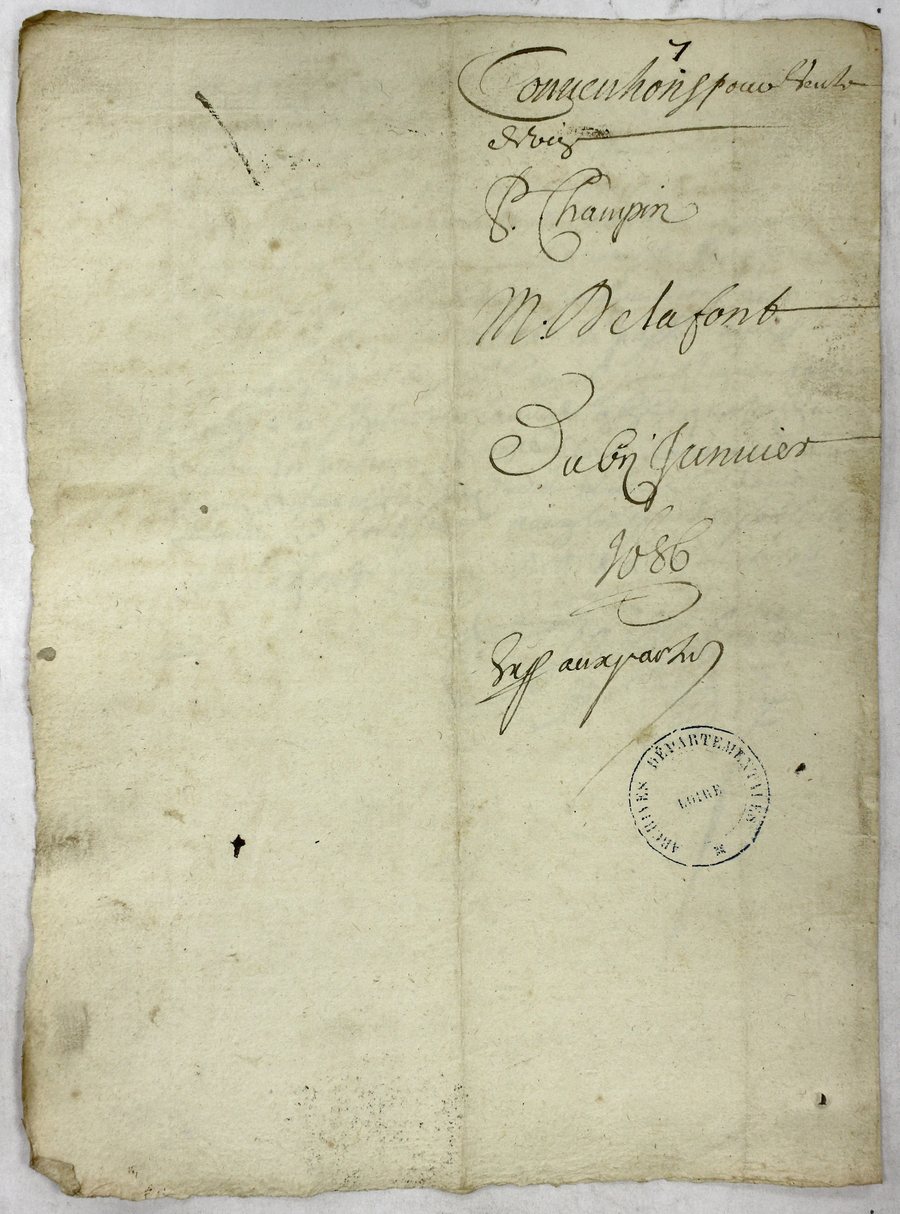 7
Conventions pour vente
de bois
P. Champin
M. Delafont
Du bij Janvier
1686
Exp aux parties
ARCHIVES DÉPARTEMENTALES
LOIRE